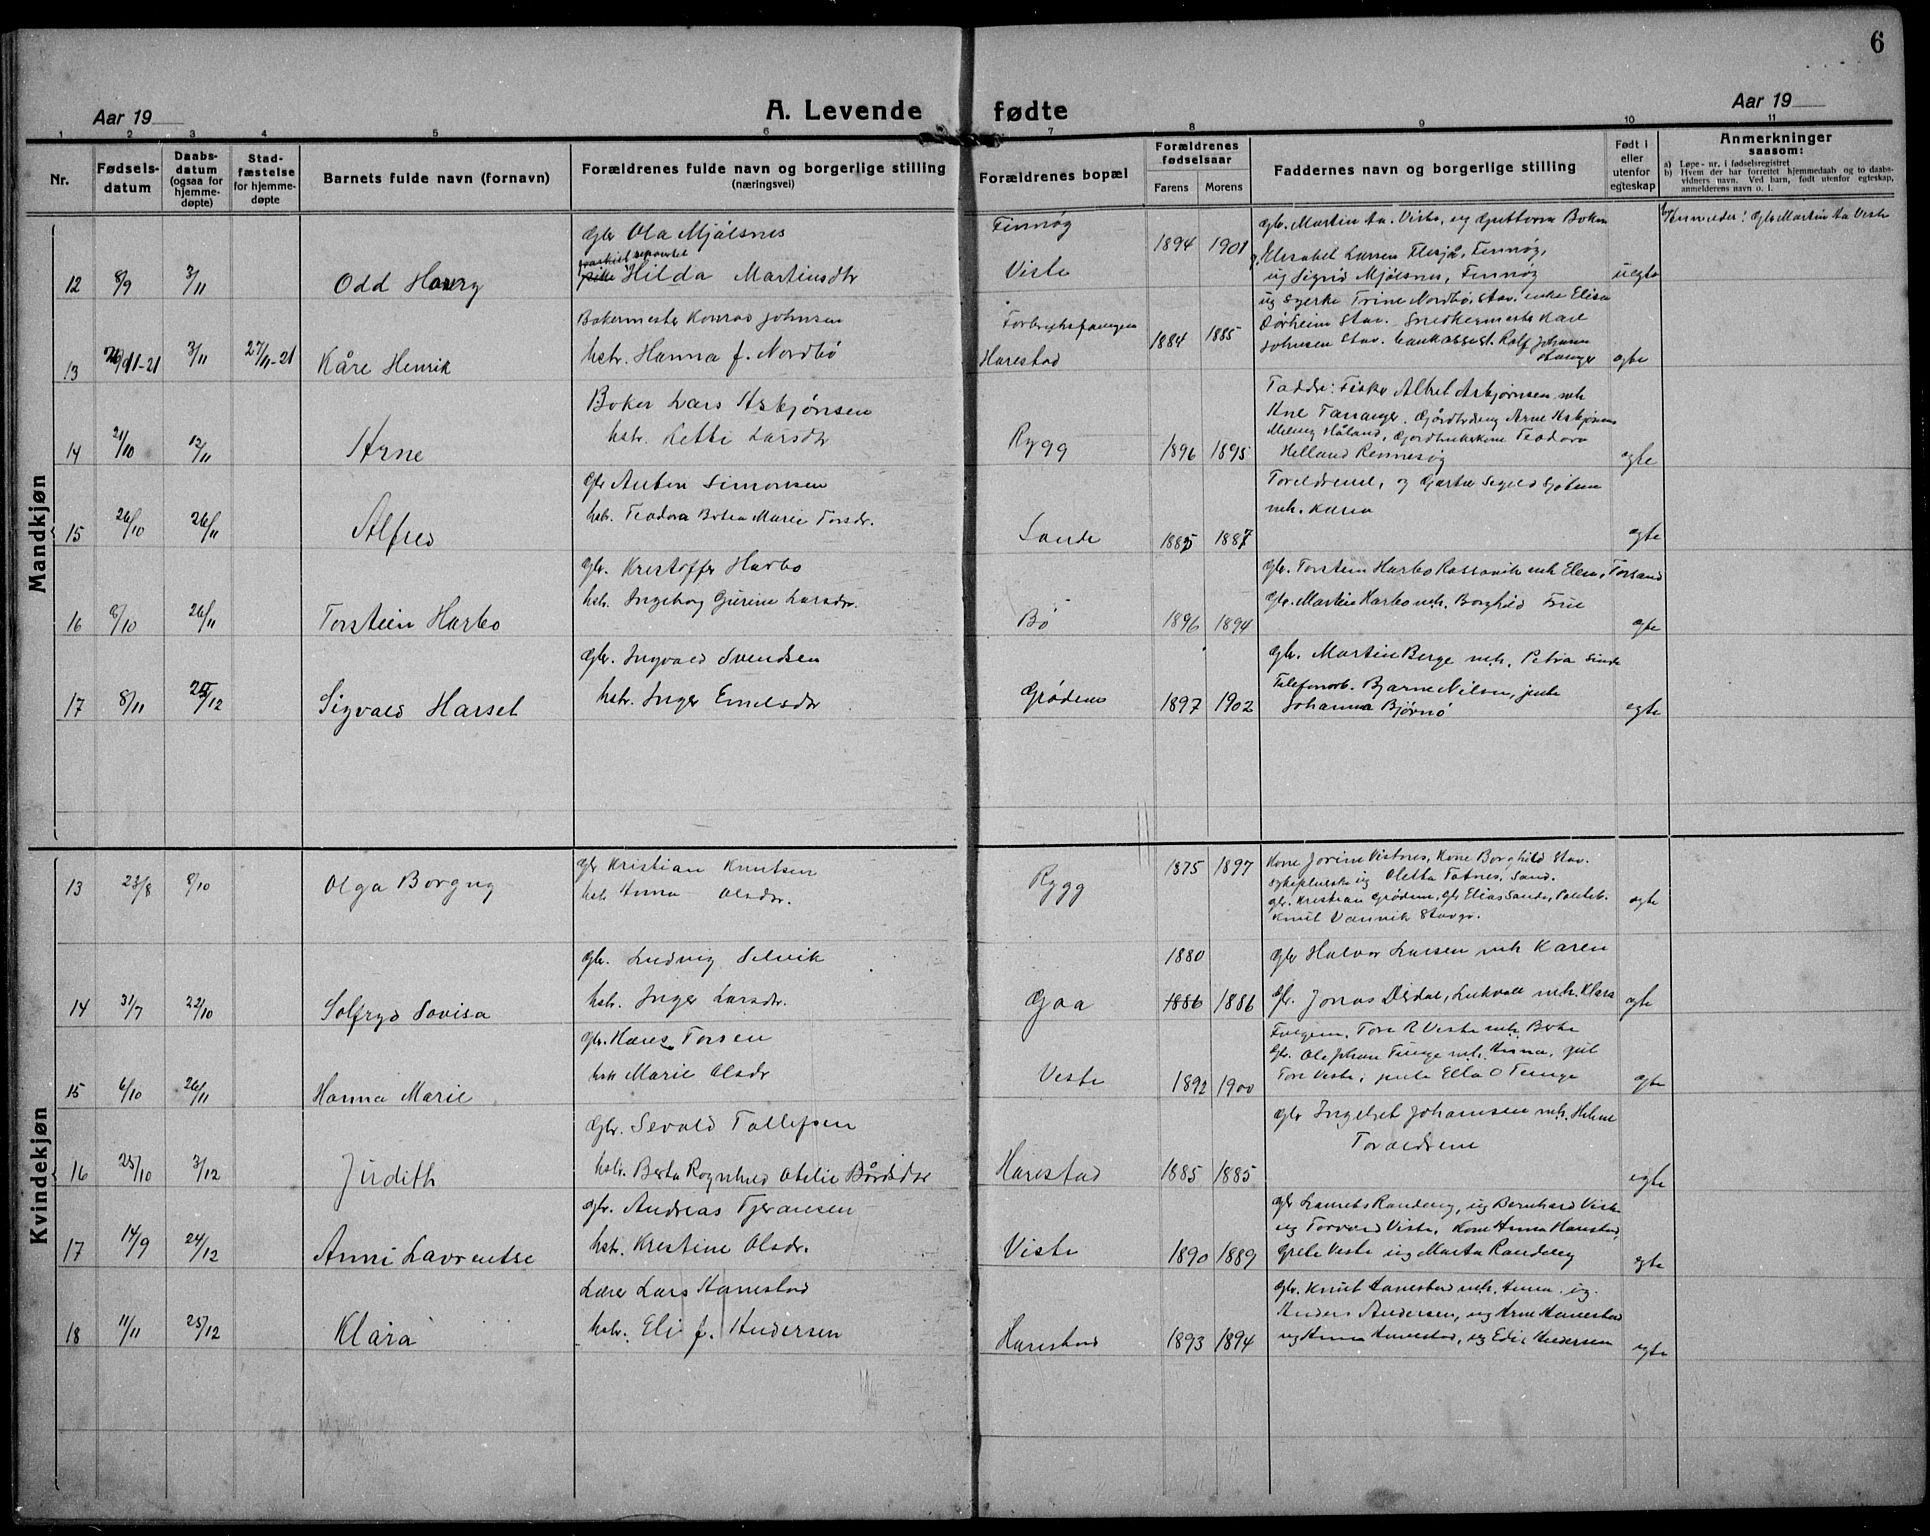 6
Aar 19
A. Levende fødte
Aar 19
1 2 3 4 5 6 7 8 9 10 11
Nr.
Fødsels-
datum
Daabs-
datum
(ogsaa for
hjemme-
døpte)
Stad-
fæstelse
for hjemme-
døpte
Barnets fulde navn (fornavn)
Forældrenes fulde navn og borgerlige stilling
(næringsvei)
Forældrenes bopæl
Forældrenes
fødselsaar
Farens Morens
Faddernes navn og borgerlige stilling
Født i
eller
utenfor
egteskap
Anmerkninger
saasom:
a) Løpe-nr. i fødselsregistret
b) Hvem der har forrettet hjemmedaab og to daabs-
vidners navn. Ved barn, født utenfor egteskap,
anmelderens navn o. l.
Mandkjøn
12 8/9 3/11 Odd Harry
gbr Ola Mjølsnes
separert
Hilda Martinsdtr
Finnøg
Viste
1894 1901
gbr. Martin Aa. Viste, ug Guttorm Boken
Elisabet Larsen Flesjå, Finnøg,
ug Sigrid Mjølsnes, Finnøg
uegte
Anmelder: Gbr Martin Aa Viste
13 11-21 3/11 27/11-21 Kåre Henrik
Bakermester Konrad Johnsen
hstr. Hanna f. Nordbø
Harestad
1884 1885
ug Syerske Trine Nordbø, Stav. enke Elisa
Dørheim Stav. Snedkermester Karl
Johnsen Stav. Bankassist. Rolf Johann
Stange
egte
14 21/10 12/11 Arne
Baker Lars Asbjønsen
hstr. Letti Larsdtr
Rygg
1896 1895
Fadder: Fisker Alfret Asbjørnsen mh
Ane Tananger. Gårdbr Arne Asbjønsens
Meling Håland, Teodora
Helland Rennesøg
egte
15 26/10 26/11 Alfred
gbr Anton Simonsen
hstr. Teodora Berta Marie Torsdr.
Sande
1885 1887
Foreldrene, og Sjøtun
mh. Karia
egte
16 8/10 26/11 Torstein Harbo
gbr. Kristoffer Harbo
hstr. Ingeborg Gurine Larsdr.
Bø
1896 1894
gbr. Torstein Harbo Rossavik mh Elen, Forsand
gbr. Martin Harbo mh. Borghild
egte
17 8/11 25/12 Sigvald Harset
gbr. Ingvald Svendsen
hstr. Inger Emelsdtr
Grødem
1897 1902
gbr. Martin Berge mh. Petra Sunde
Telefonarb. Bjarne Nilsen, pike
Johanna Bjørnø
egte
Kvindekjøn
13 23/8 8/10 Olga Borgny
gbr Kristian Knutsen
hstr Anna Olsdr.
Rygg
1875 1897
Kone Jorine Vistnes, Kone Borghild Stav.
sykepleiske ug Oletta Totnes, Sand.
gbr. Kristian Grødem, gbr Elias Sande,
Knut Vannvik Stavgr.
egte
14 31/7 22/10 Solfryd Lovisa
gbr. Ludvig Selvik
hstr. Inger Larsdr.
Goa
1880
1886 1886
gbr Halvor Larsen mh Karen
gbr. Jonas Dysdal, mh. Klara
egte
15 6/10 26/11 Hanna Marie
gbr. Hans Torsen
hstr Marie Olsdr
Viste
1892 1900
Tore R Viste mh Berte
gbr. Ole Johan Tunge mh. Anna, gut
Tore Viste, pike Ella O Tunge
egte
16 25/10 3/12 Judith
gbr. Sevald Tollefsen
hstr. Berta Rognhild Otelie Bårdsdtr
Harestad
1885 1885
gbr Ingebret Johannsen mh. Helene
Foreldrene
egte
17 14/9 24/12 Anni Lavrentse
gbr. Andreas Tjeransen
hstr. Kristine Olsdr.
Viste
1890 1889
gbr Randeberg, ug Bernhard Viste
ug Torvald Viste, Kone Anna Harestad,
Grete Viste ug Marta Randeberg
egte
18 11/11 25/12 Klara
Lærer Lars Harestad
hstr. Eli f. Andersen
Harestad
1893 1894
gbr. Knut Harestad mh. Anna. ug.
Anders Andersen, ug Arne Harestad
ug Anna Harestad, ug Edit Andersen
egte